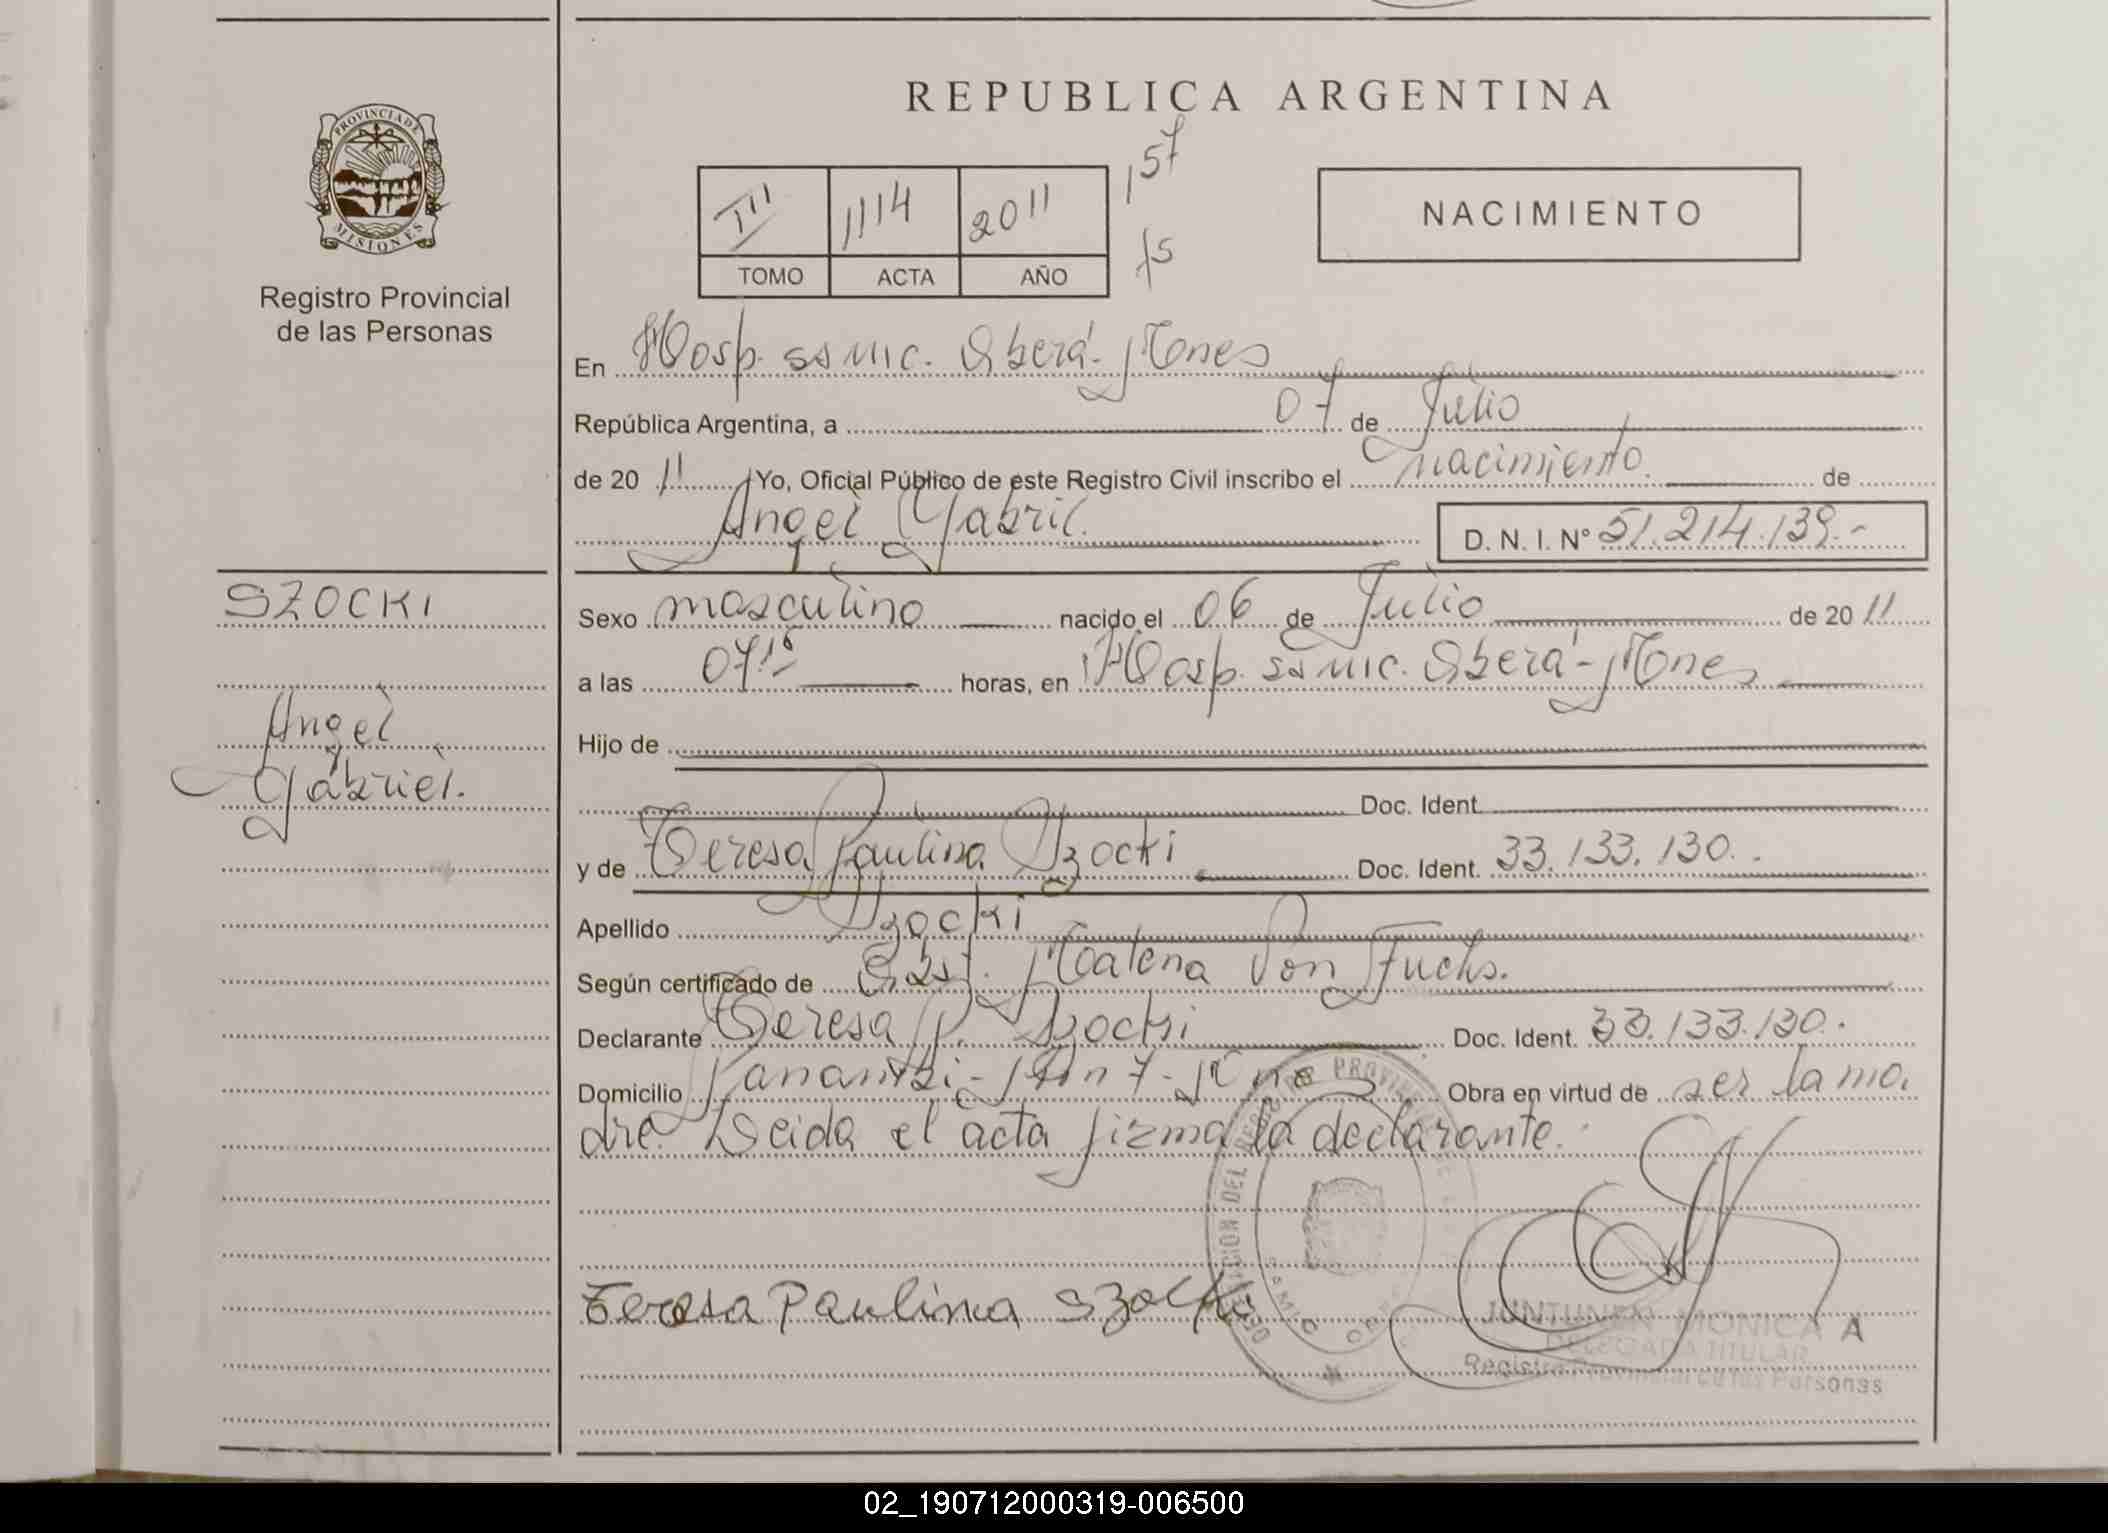 REPUBLICA ARGENTINA
PROVINCIA DE
MISIONES
Registro Provincial
de las Personas
III 1114 2011
TOMO ACTA AÑO
157
NACIMIENTO
En Hosp. ssmic. Oberá-Mones
República Argentina, a 07 de Julio
de 20 11 Yo, Oficial Público de este Registro Civil inscribo el nacimiento. de
Angel Gabril. D. N. I. Nº 51.214.139.-
SZOCKI
Angel
Gabriel.
Sexo masculino nacido el 06 de Julio de 20 11
a las 07 15 horas, en Hosp. ssmic. Oberá-Mones
Hijo de
Doc. Ident.
y de Teresa Paulina Szocki Doc. Ident. 33.133.130.
Apellido Szocki
Según certificado de Obst. Malena Von Fuchs.
Declarante Teresa P. Szocki Doc. Ident. 33.133.130.
Domicilio Panambi- Obra en virtud de ser la ma.
dre. Leida el acta firma la declarante.
Teresa Paulina Szocki
DELEGACION DEL REGISTRO PROVINCIAL DE
JUNTUNEN MONICA A
DELEGADA TITULAR
Registro Provincial de las Personas
02_190712000319-006500